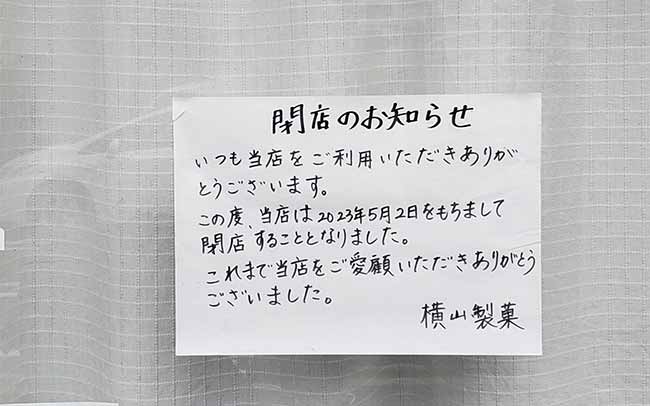 閉店のお知らせ
いつも当店をご利用いただきありが
とうございます。
この度、当店は2023年5月2日をもちまして
閉店することとなりました。
これまで当店をご愛顧いただきありがとう
ございました。
横山製菓